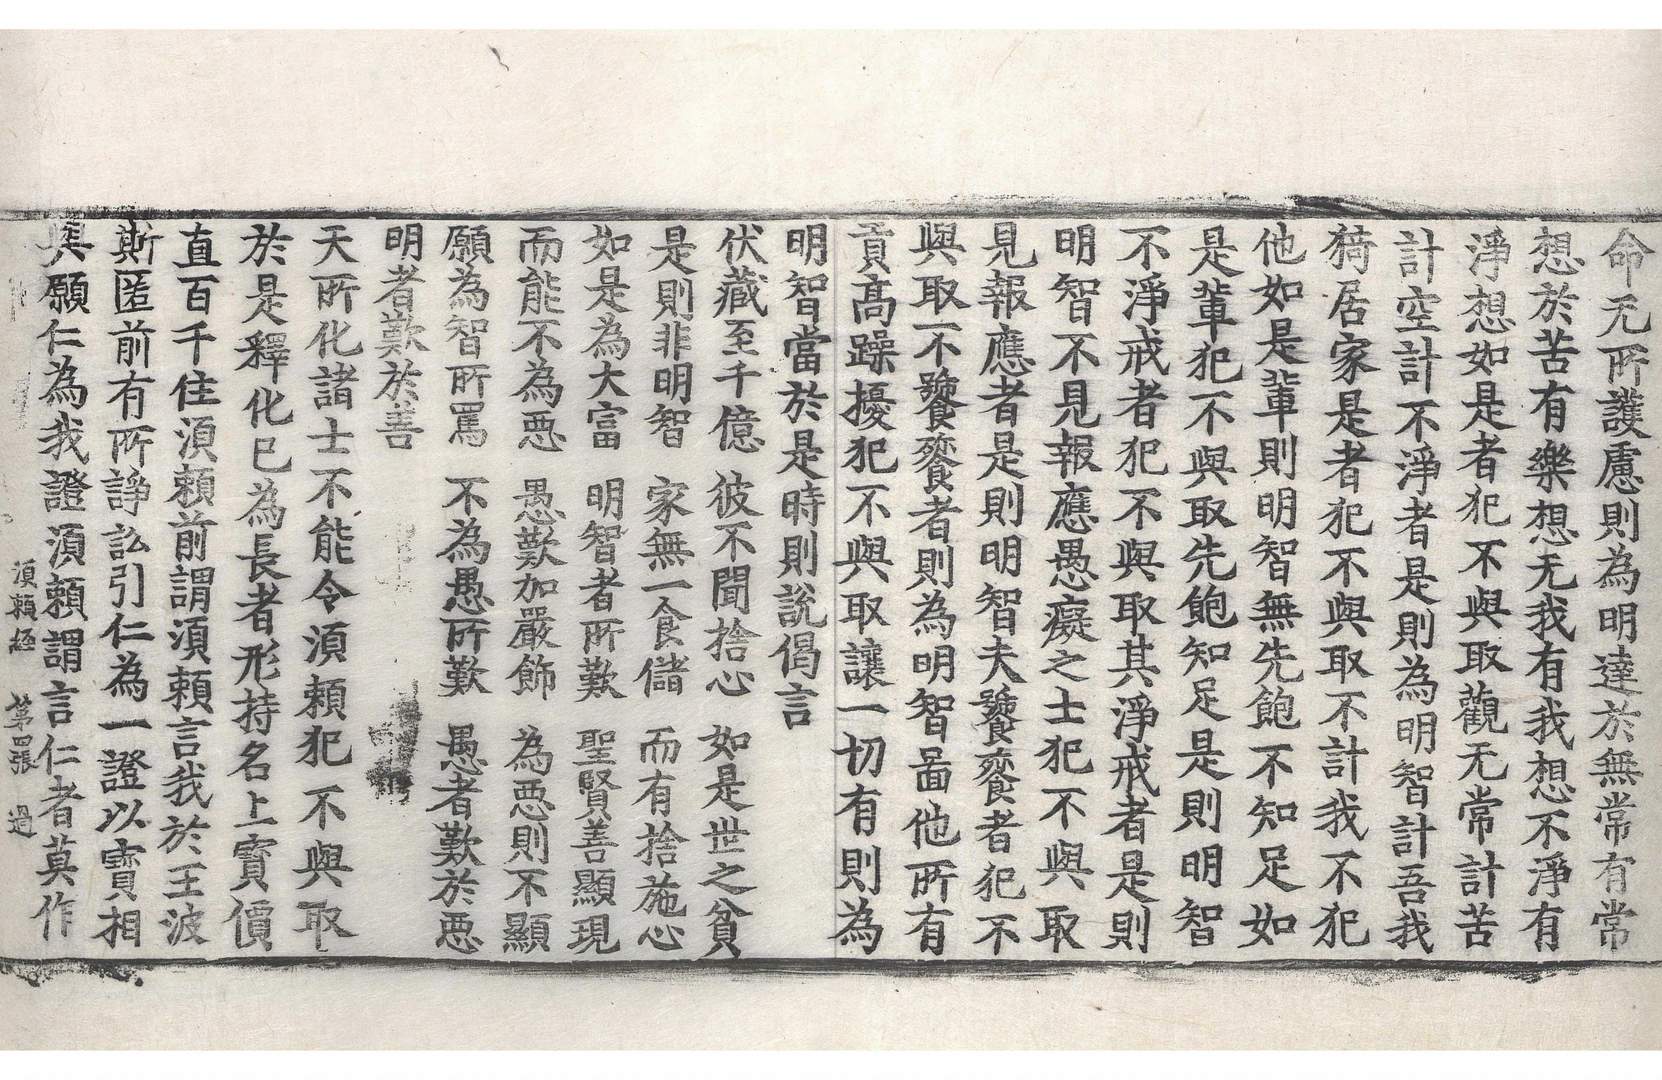 命无所護慮則為明達於無常有常
想於苦有樂想无我有我想不淨有
淨想如是者犯不與取觀无常計苦
計空計不淨者是則為明智計吾我
猗居家是者犯不與取不計我不犯
他如是輩則明智無先飽不知足如
是輩犯不與取先飽知足是則明智
不淨戒者犯不與取其淨戒者是則
明智不見報應愚癡之士犯不與取
見報應者是則明智夫饕餮者犯不
與取不饕餮者則為明智啚他所有
貢高躁擾犯不與取讓一切有則為
明智當於是時則說偈言
伏藏至千億 彼不聞捨心 如是世之貧
是則非明智 家無一食儲 而有捨施心
如是為大富 明智者所歎 聖賢善顯現
而能不為惡 愚歎加嚴飾 為惡則不顯
願為智所罵 不為愚所歎 愚者歎於惡
明者歎於善
天所化諸士不能令湏頼犯不與取
於是釋化已為長者形持名上寶價
直百千住湏頼前謂湏頼言我於王波
斯匿前有所諍訟引仁為一證以寶相
與願仁為我證湏頼謂言仁者莫作
湏頼經 第四張 過